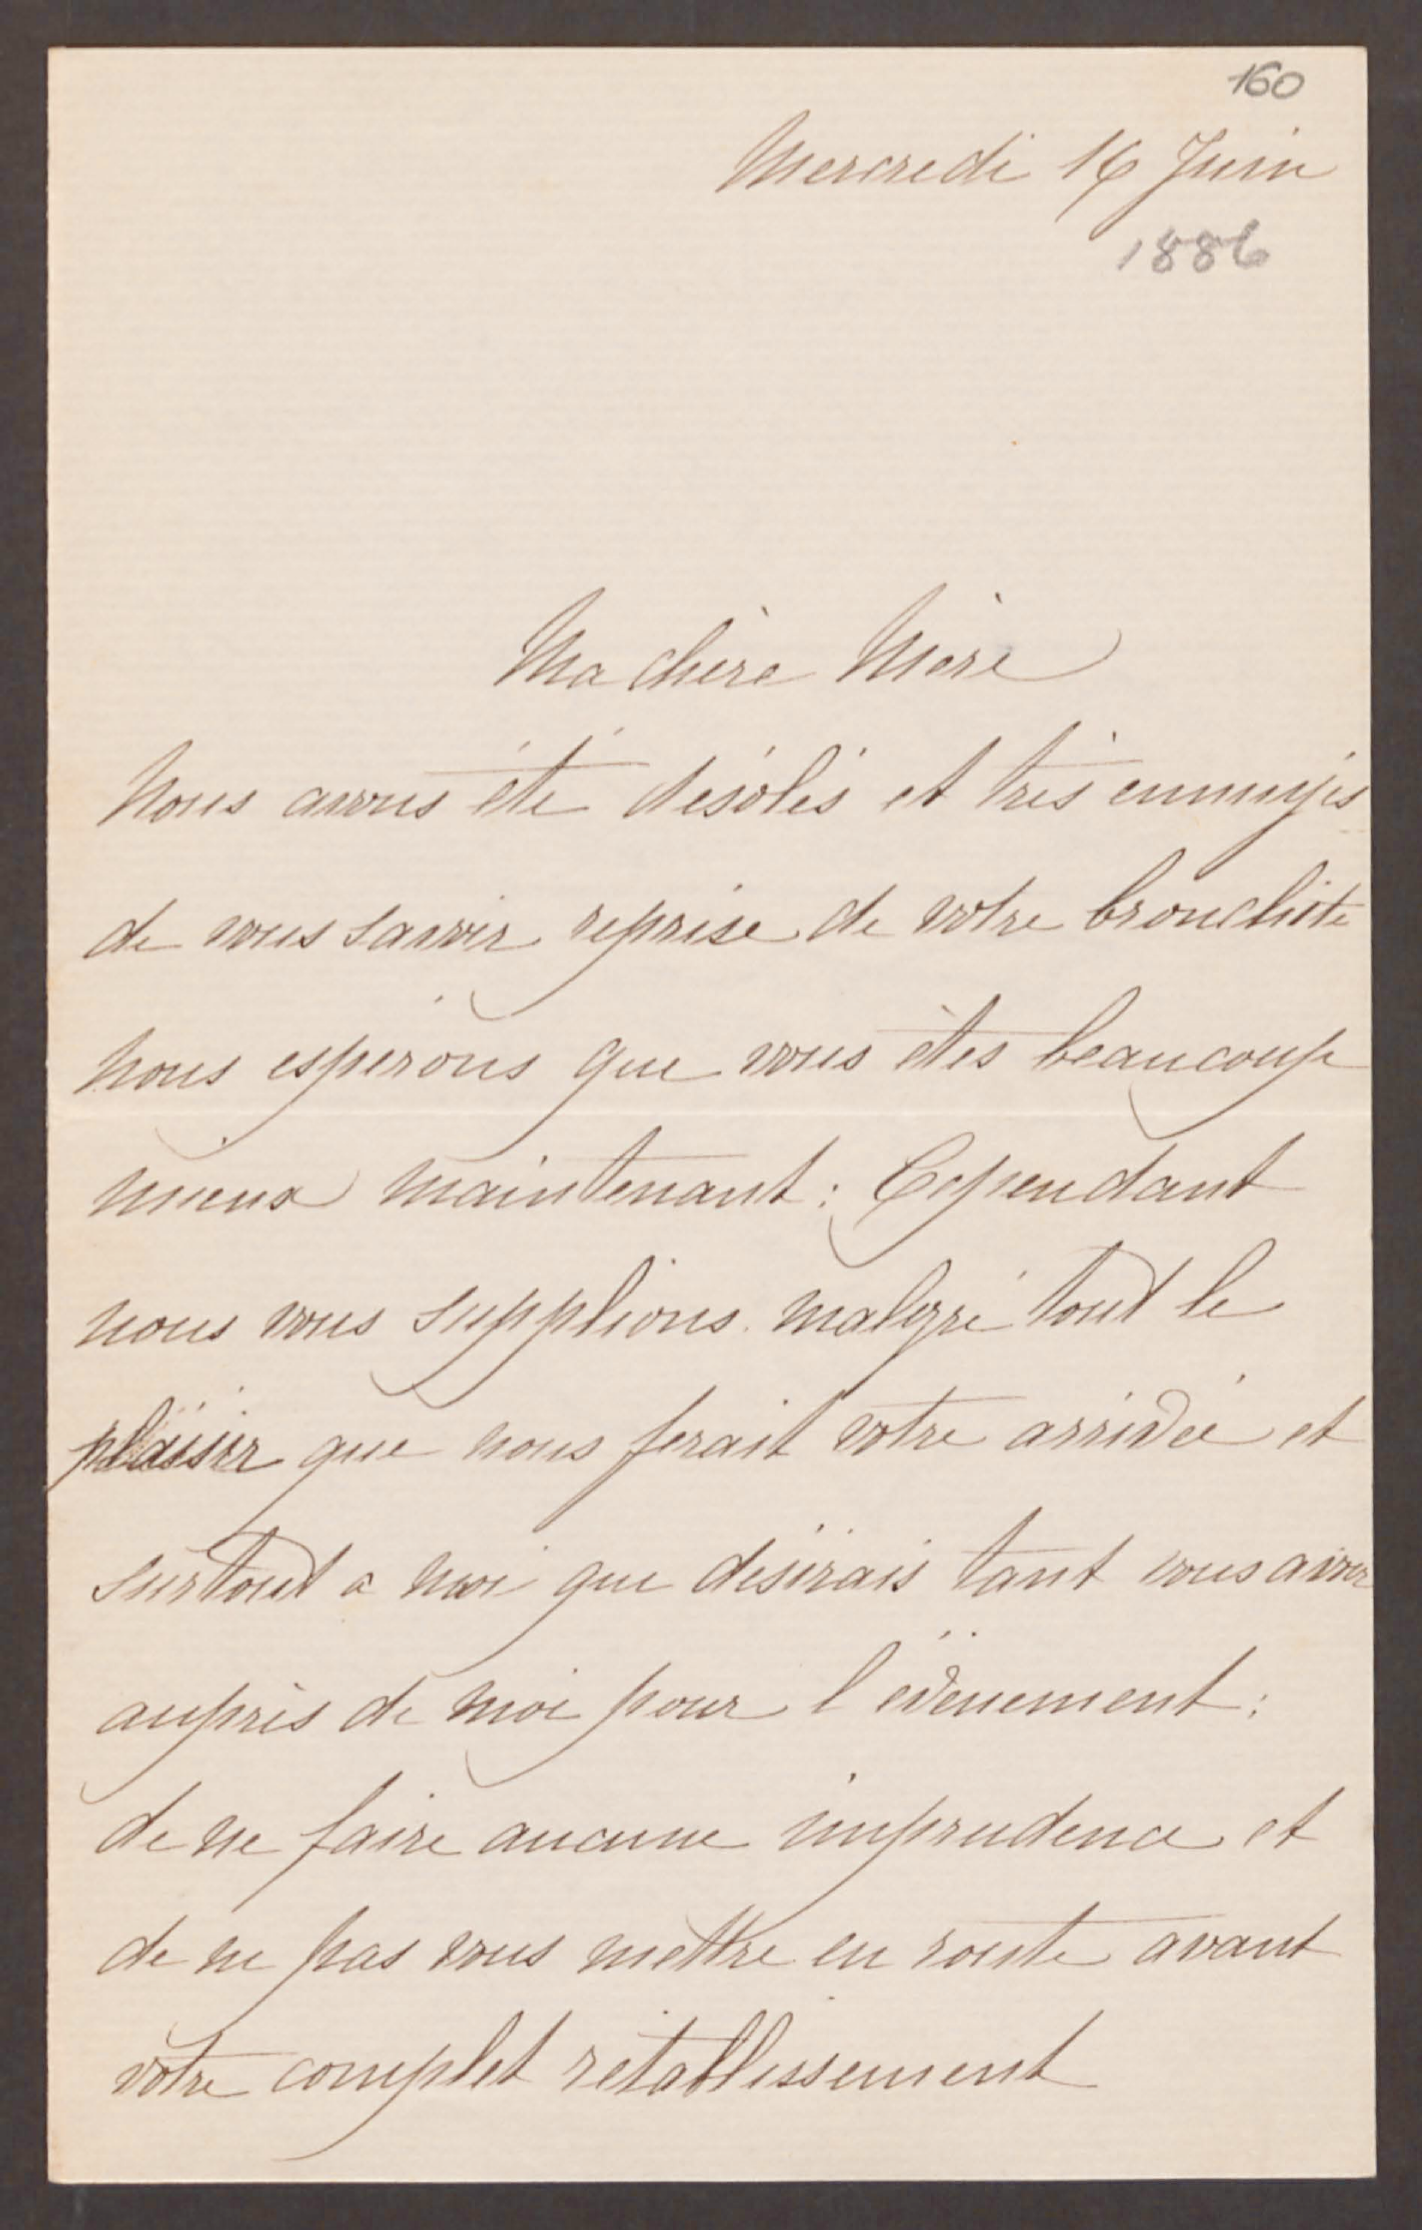 160
Mercredi 16 Juin
1886
Ma chère Mère
Nous avons été désolés et très ennuyés
de vous savoir reprise de votre bronchite
nous espérons que vous êtes beaucoup
mieux maintenant : Cependant
nous vous supplions malgré tout le
plaisir que nous ferait votre arrivée et
surtout a moi que désirais tant vous avoir
auprès de moi pour l'évènement :
de ne faire aucune imprudence et
de ne pas vous mettre en route avant
votre complet rétablissement